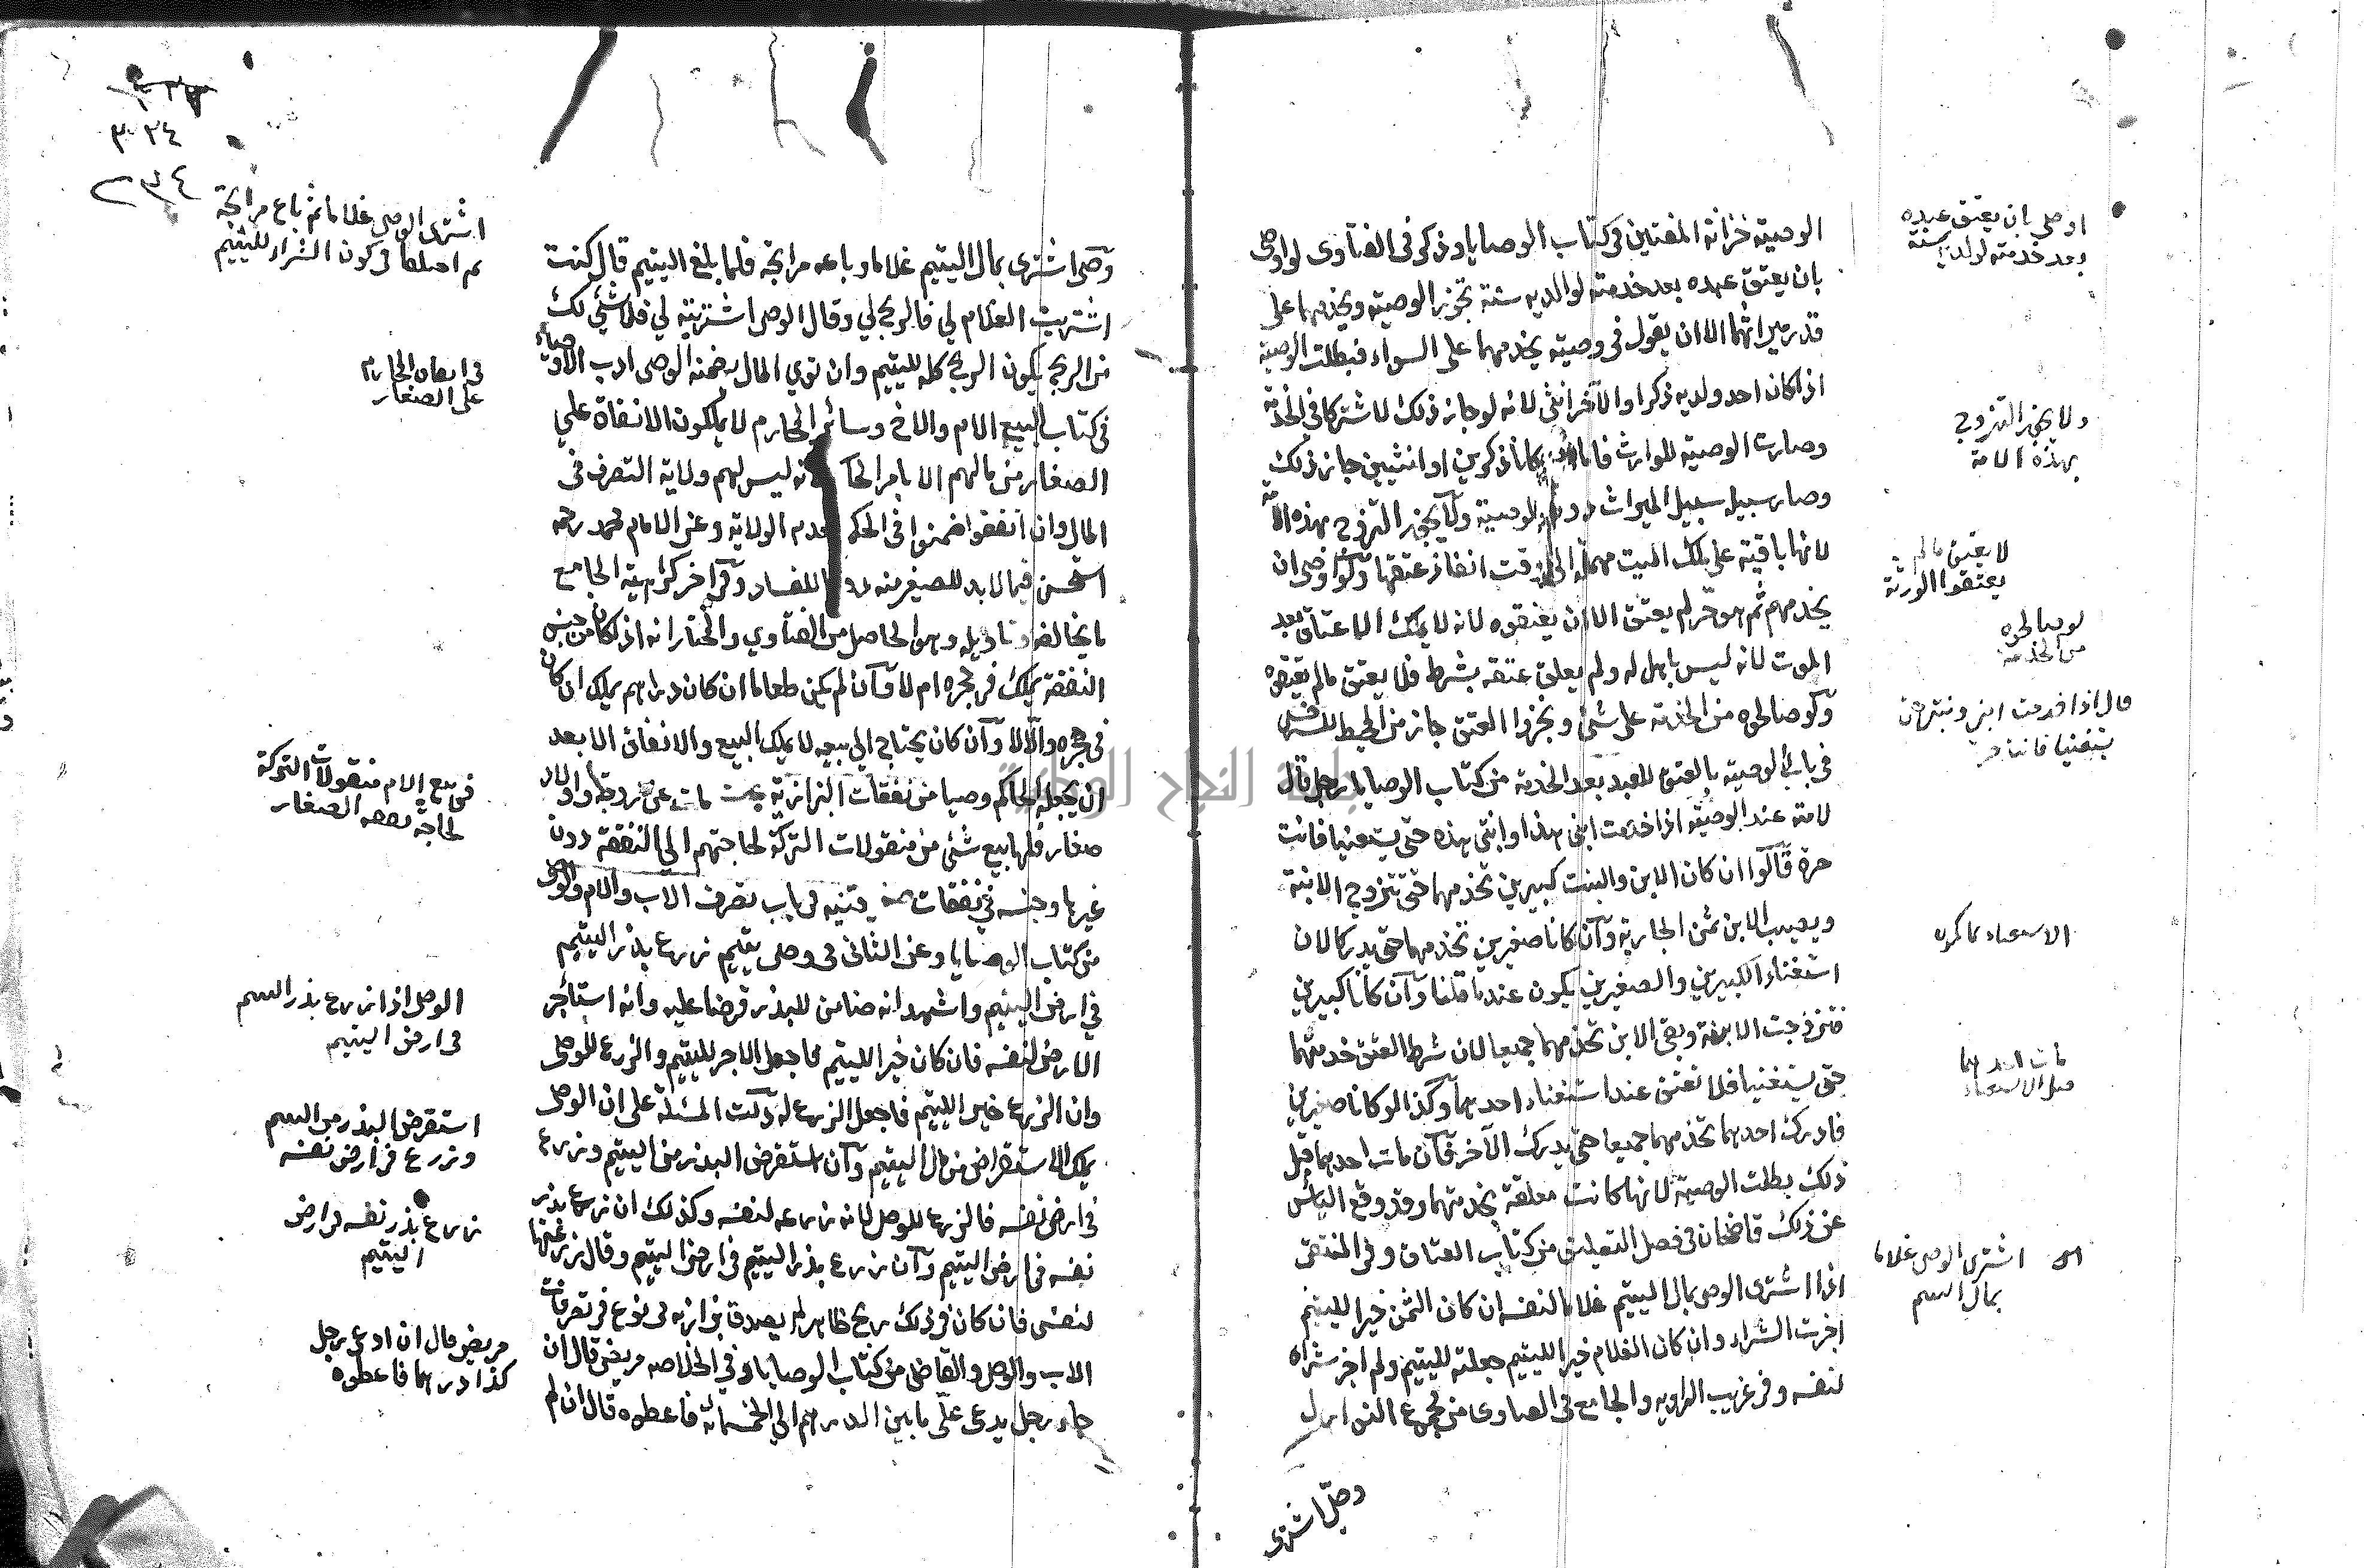 الوصية خزانة المفتين في كتاب الوصايا وذكر في الفتاوى لو اوصى
بان يعتق عبده بعد خدمته لوالديه سنة تجوز الوصية ويخدمهما على
قدر ميراثهما الا ان يقول في وصيته يخدمهما على السواء فبطلت الوصية
اذا كان احد ولديه ذكرا والآخر انثى لانه لو جاز ذلك لاشتركا في الخدمة
وصارت الوصية للوارث فاما كانا ذكرين او انثيين جاز ذلك
وصار سبيله سبيل الميراث دون الوصية ولا يجوز التزوج بهذه الامة
لانها باقية على ملك الميت مهملة الى وقت انفاذ عتقها ولو اوصى ان
يخدمهم ثم هو حر لم يعتق الا ان يعتقوه لانه لا يملك الاعتاق بعد
الموت لانه ليس باهل له ولم يعلق عتقه بشرط فلا يعتق مالم يعتقوه
ولو صالحوه من الخدمة على شئ ويجزوا العتق جاز من المحيط للسرخسي
في باب الوصية بالعتق للعبد بعد الخدمة من كتاب الوصايا رجل قال
لامته عند الوصية اذا خدمت ابني هذا وابنتي هذه حتى يستغنيا فانت
حرة قالوا ان كان الابن والبنت كبيرين تخدمهما حتى تتزوج الابنة
ويصيب الابن ثمن الجارية وان كانا صغيرين تخدمهما حتى يدركا لان
استغناء الكبيرين والصغيرين يكون عندما قلنا وان كانا كبيرين
فتزوجت الابنة وبقي الابن تخدمهما جميعا لان شرط العتق خدمتهما
حتى يستغنيا فلا تعتق عند استغناء احدهما وكذا لو كانا صغيرين
فادرك احدهما تخدمهما جميعا حتى يدرك الآخر فان مات احدهما قبل
ذلك بطلت الوصية لانها كانت معلقة بخدمتهما وقد وقع اليأس
عن ذلك قاضخان في فصل التعليق من كتاب العتاق وفي المنتقى
اذا اشترى الوصي بمال اليتيم غلاما لنفسه ان كان الثمن خيرا لليتيم
اجزت الشراء وان كان الغلام خيرا لليتيم جعلته لليتيم ولم اجز شراه
لنفسه وفي غريب الرواية والجامع في الفتاوى من مجموع النوازل
وصي اشترى
اوصى بان يعتق عبده
بعد خدمته لولديه سنة
ولا يجوز التزوج
بهذه الامة
لا يعتق مالم
يعتقوا الورثة
لو صالحوه
من الخدمة
قال اذا خدمت ابني وبنتي حتى
يستغنيا فانت حر
مات احدهما
قبل الاستغناء
اشترى الوصي غلاما
بمال اليتيم
٢٣٤
وصي اشترى بمال اليتيم غلاما وباعه مرابحة فلما بلغ اليتيم قال كنت
اشتريت الغلام لي فالربح لي وقال الوصي اشتريته لي فلا شئ لك
من الربح يكون الربح كله لليتيم وان توي المال يضمنه الوصي ادب الاوصياء
في كتاب البيع الام والاخ وسائر المحارم لا يملكون الانفاق علي
الصغار من مالهم الا بامر الحاكم لانه ليس لهم ولاية التصرف في
المال وان انفقوا ضمنوا في الحكم لعدم الولاية وعن الامام محمد رحمه
استحسن فيما لابد للصغير منه للفساد وفي آخر كراهية الجامع
ما يخالفه وتاويله وهو الحاصل من الفتاوي والمختار انه اذا كان من جنس
النفقة يملك في حجره ام لا وان لم يكن طعاما ان كان دراهم يملك ان كان
في حجره والا لا وان كان يحتاج الي بيعه لا يملك البيع والانفاق الا بعد
ان يجعله الحاكم وصيا من نفقات البزازية مات عن زوجة واولاد
صغار فلها بيع شئ من منقولات التركة لحاجتهم الي النفقة دون
غيرها وجنسه في نفقات قنية في باب تصرف الاب والام والوصي
من كتاب الوصايا وعن الثاني في وصي يتيم زرع بذر اليتيم
في ارض اليتيم واشهد انه ضامن للبذر قرضا عليه وانه استأجر
الارض لنفسه فان كان خيرا لليتيم فاجعل الاجر لليتيم والزرع للوصي
وان الزرع خيرا لليتيم فاجعل الزرع له دلت المسئلة على ان الوصي
يملك الاستقراض من مال اليتيم وان استقرض البذر من اليتيم وزرع
في ارض نفسه فالزرع للوصي لانه زرعه لنفسه وكذلك ان زرع بذر
نفسه في ارض اليتيم وان زرع بذر اليتيم في ارض اليتيم وقال زرعتها
لنفسي فان كان في ذلك ربح ظاهر لم يصدق بزازيه في نوع في تصرفات
الاب والوصي والقاضي من كتاب الوصايا وفي الخلاصة مريض قال ان
جاء رجل يدعي علي ما بين الدراهم الي الخمسمائة فاعطوه قال ان لم
اشترى الوصي غلاما ثم باع مرابحة
ثم اختلفا في كون الشراء لليتيم
في انفاق المحارم
على الصغار
في بيع الام منقولات التركة
لحاجة نفقة الصغار
الوصي اذا زرع بذر اليتيم
في ارض اليتيم
استقرض البذر من اليتيم
وزرع في ارض نفسه
زرع بذر نفسه في ارض
اليتيم
مريض قال ان ادعى رجل
كذا درهما فاعطوه